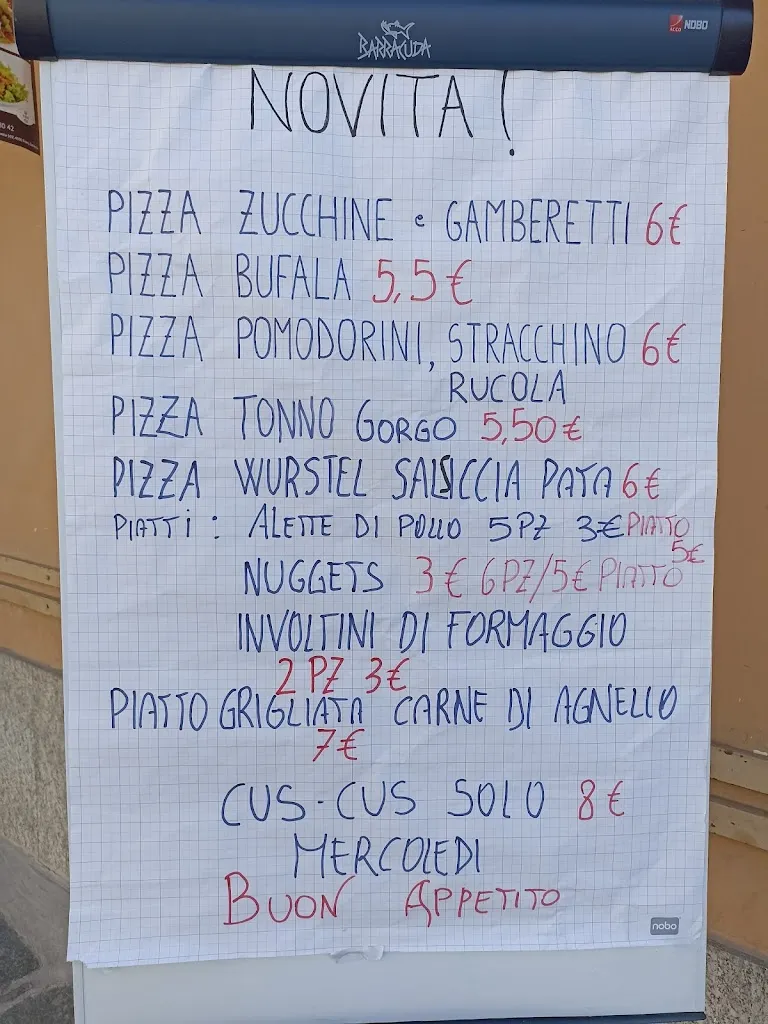 BARRACUDA
ACCO NOBO
NOVITA!
PIZZA ZUCCHINE e GAMBERETTI 6€
PIZZA BUFALA 5,5€
PIZZA POMODORINI, STRACCHINO 6€
RUCOLA
PIZZA TONNO GORGO 5,50€
PIZZA WURSTEL SALSICCIA PATA 6€
PIATTI: ALETTE DI POLLO 5PZ 3€ PIATTO
5€
NUGGETS 3€ 6PZ/5€ PIATTO
INVOLTINI DI FORMAGGIO
2 PZ 3€
PIATTO GRIGLIATA CARNE DI AGNELLO
7€
CUS-CUS SOLO 8€
MERCOLEDI
BUON APPETITO
nobo